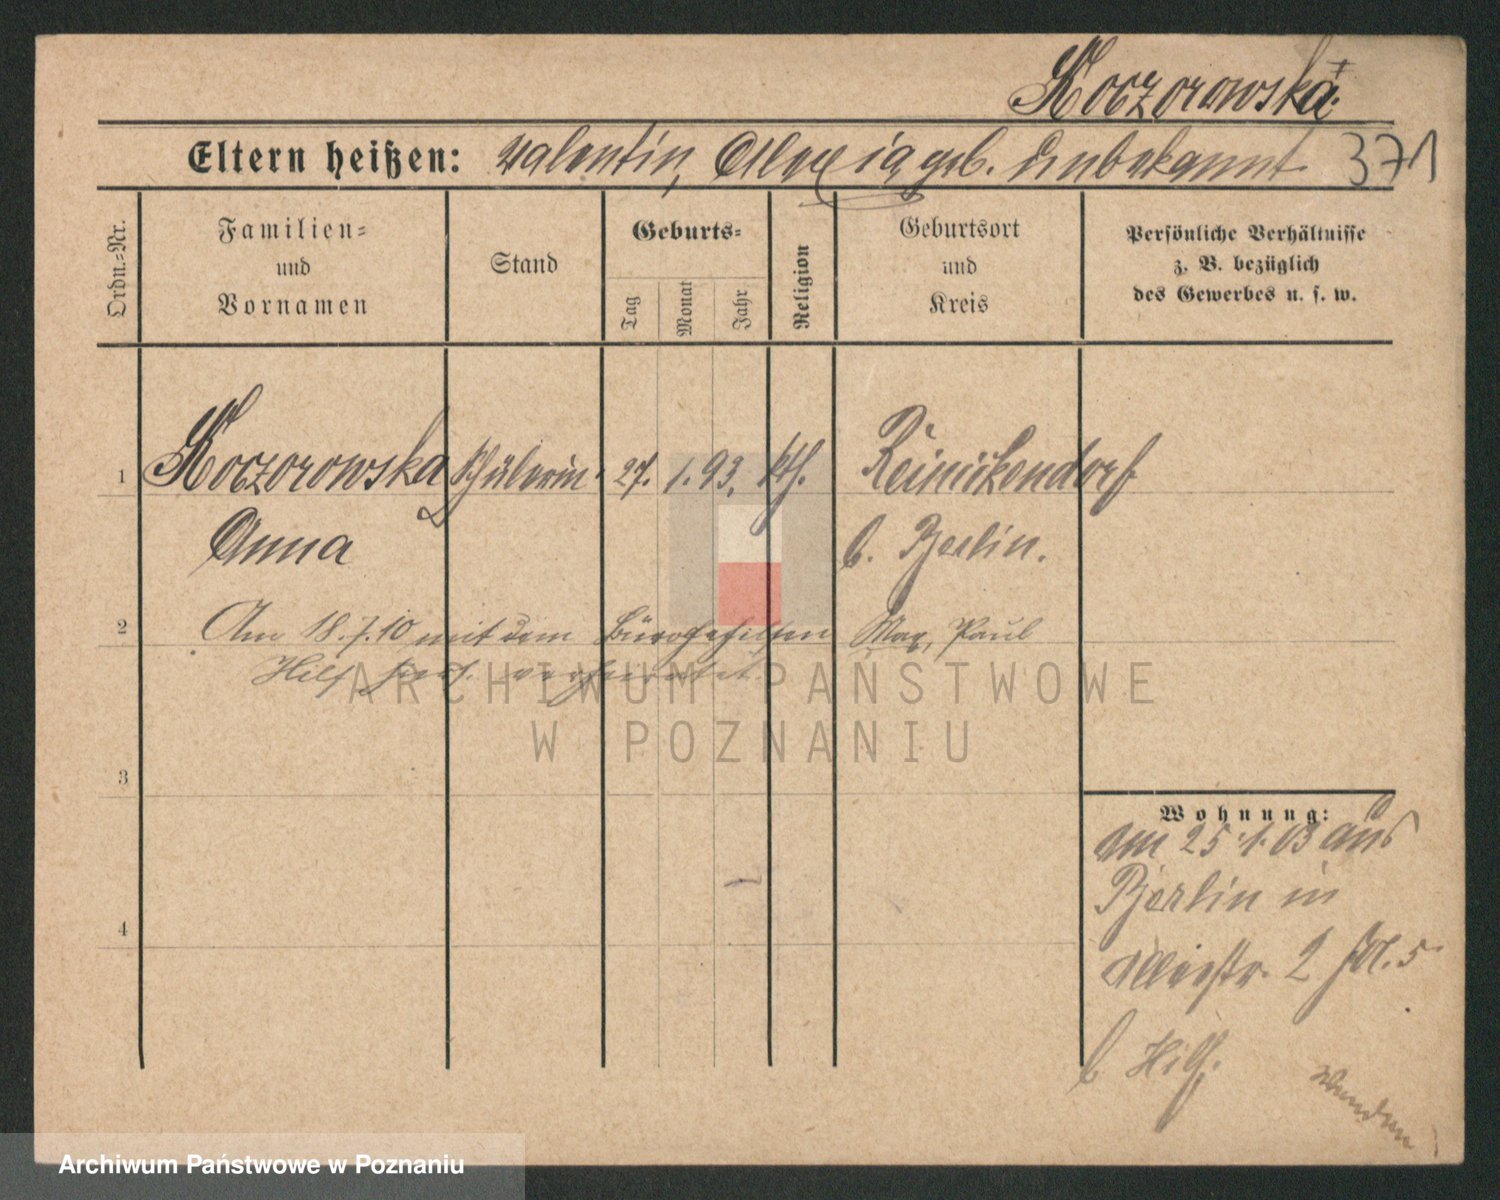 Koczorowska
Eltern heißen: Valentin, Alexia, geb. Unbekannt 371
Ordn.-Nr.
Familien-
und
Vornamen
Stand
Geburts-
Tag
Monat
Jahr
Religion
Geburtsort
und
Kreis
Persönliche Verhältnisse
z. B. bezüglich
des Gewerbes u. s. w.
1 Koczorowska Schülerin 27. 1. 93. kth. Reinickendorf
Anna b. Berlin.
2 Am 18.7.10 mit dem Bürogehilfen Max, Paul
Hilf verheiratet.
ARCHIWUM PAŃSTWOWE
W POZNANIU
3
4
Wohnung:
am 25.1.03 aus
Berlin in
2 5
b Hilf.
wenden
Archiwum Państwowe w Poznaniu